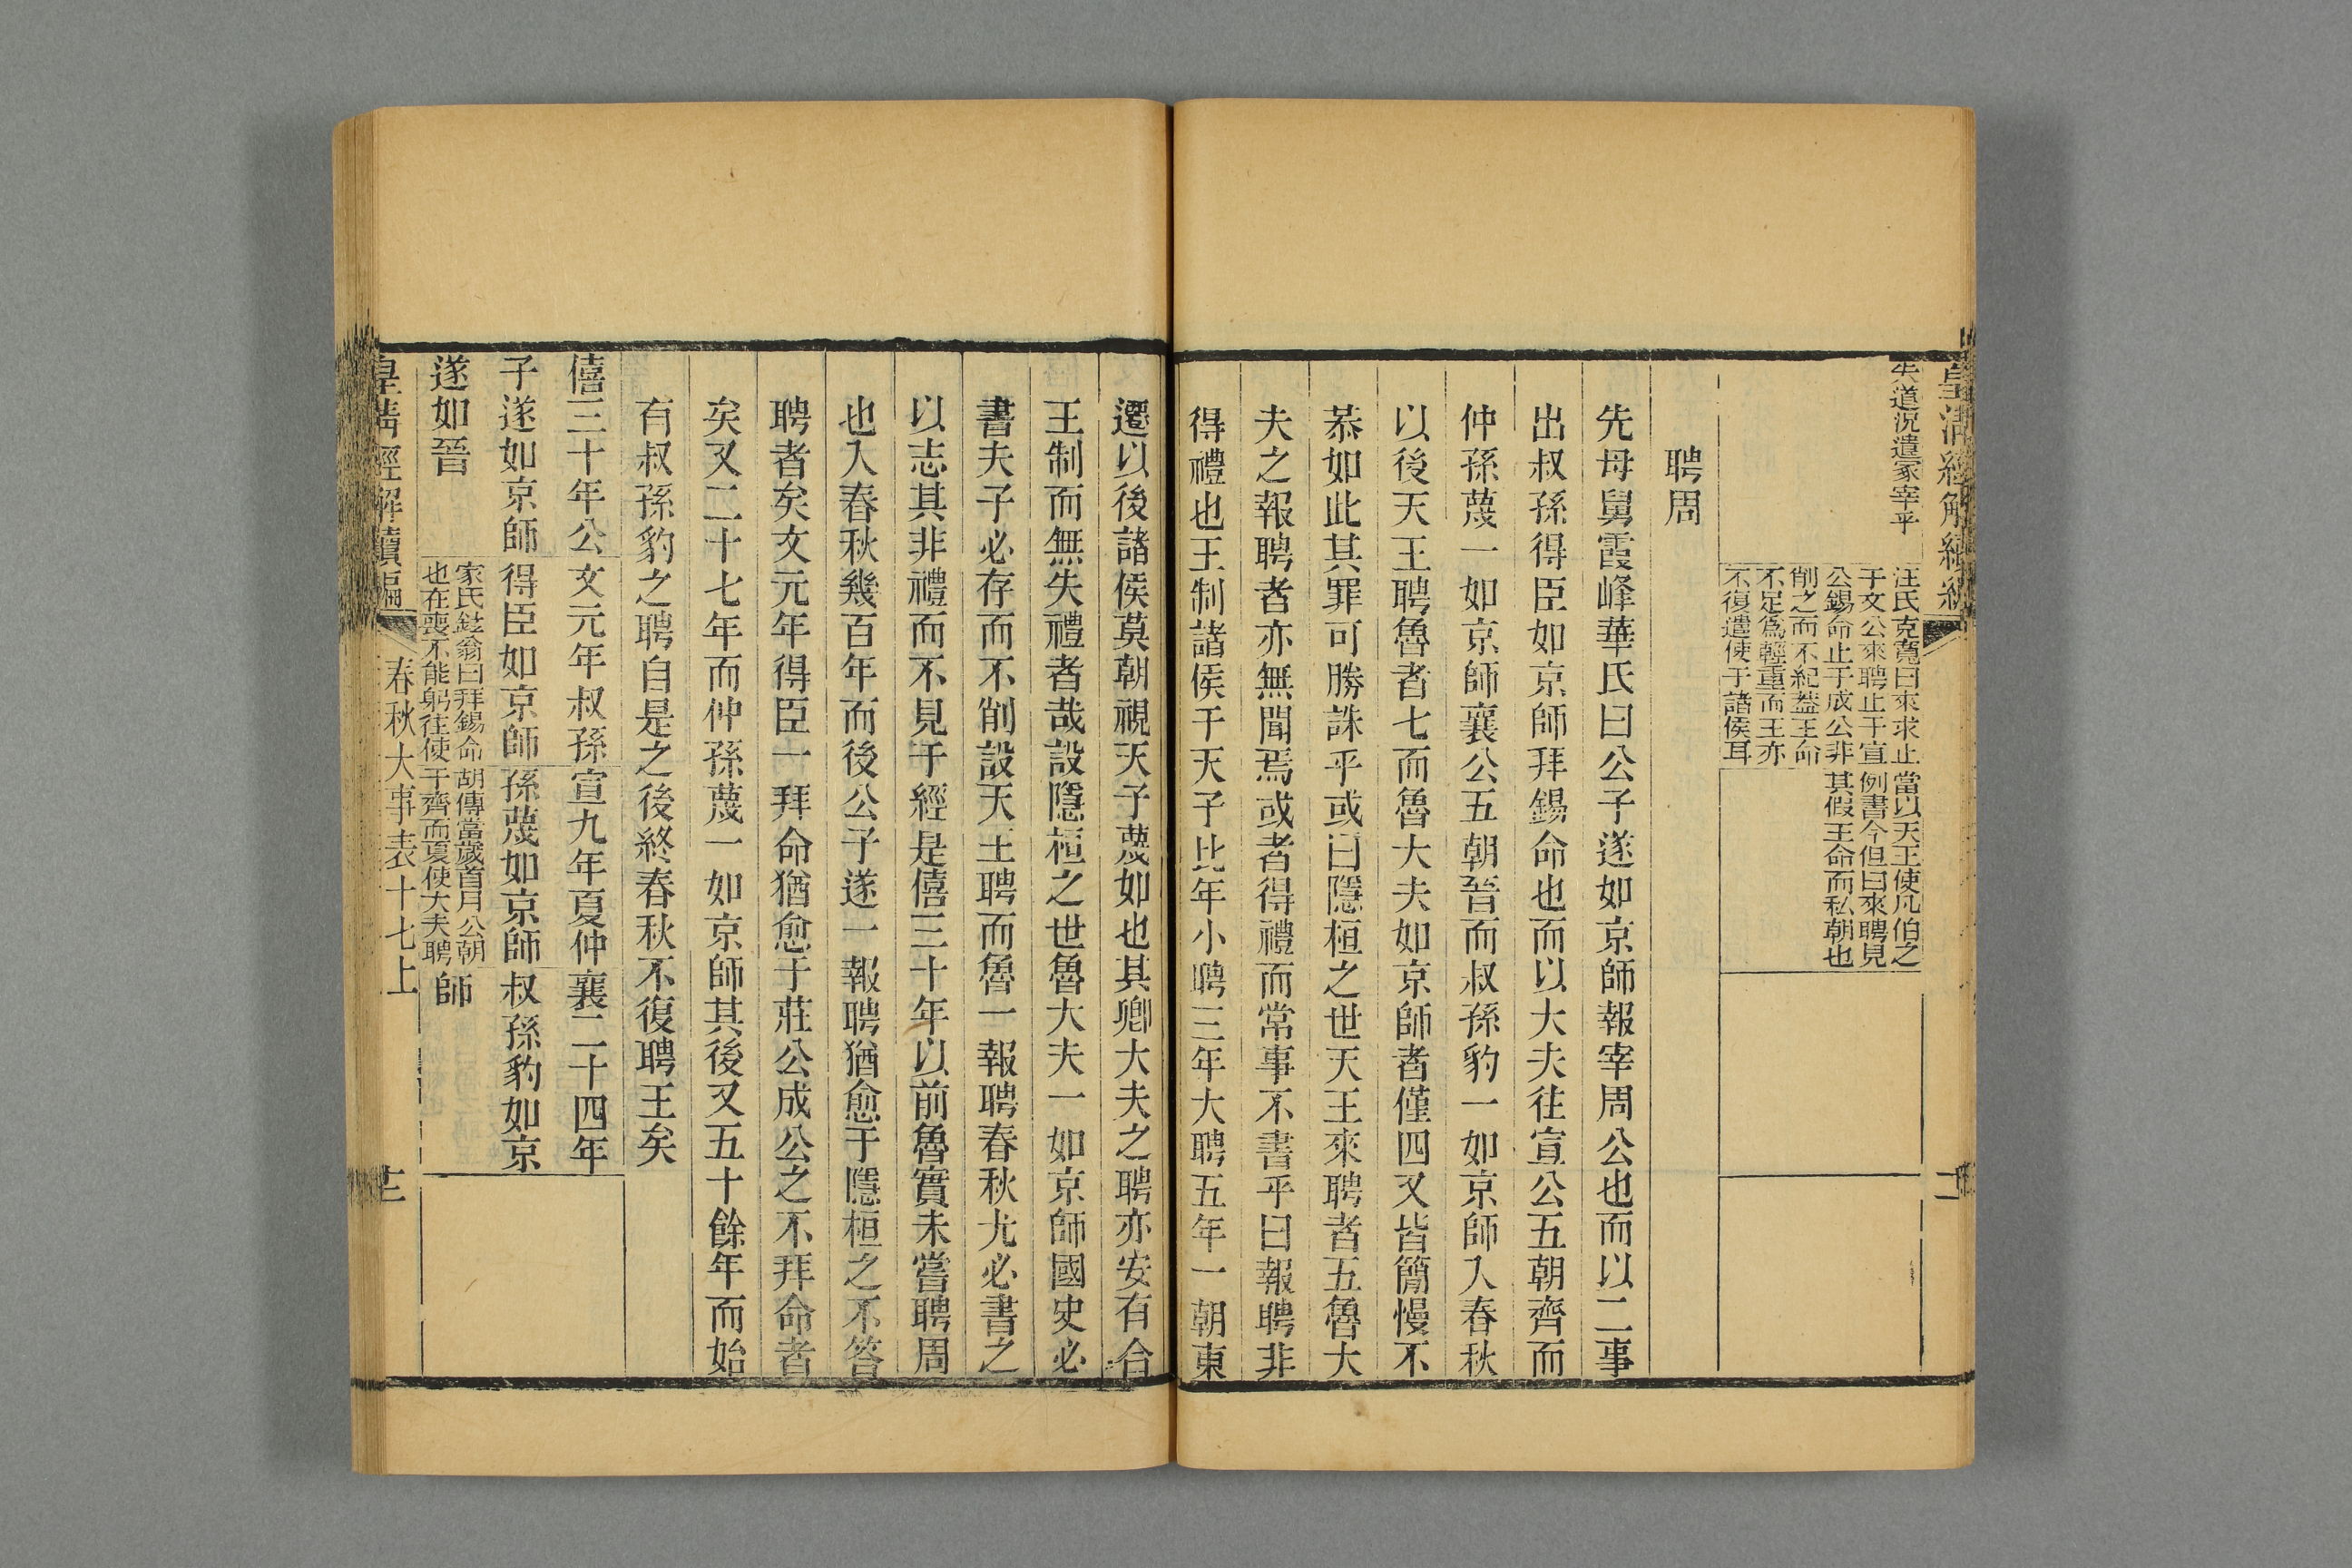 皇清經解續編
失道況遣冢宰乎
汪氏克寬曰來求止
于文公來聘止于宣
公錫命止于成公非
削之而不紀蓋王命
不足為輕重而王亦
不復遣使于諸侯耳
當以天王使凡伯之
例書今但曰來聘見
其假王命而私朝也
聘周
先母舅霞峰華氏曰公子遂如京師報宰周公也而以二事
出叔孫得臣如京師拜錫命也而以大夫往宣公五朝齊而
仲孫蔑一如京師襄公五朝晉而叔孫豹一如京師入春秋
以後天王聘魯者七而魯大夫如京師者僅四又皆簡慢不
恭如此其罪可勝誅乎或曰隱桓之世天王來聘者五魯大
夫之報聘者亦無聞焉或者得禮而常事不書乎曰報聘非
得禮也王制諸侯于天子比年小聘三年大聘五年一朝東
遷以後諸侯莫朝視天子蔑如也其卿大夫之聘亦安有合
王制而無失禮者哉設隱桓之世魯大夫一如京師國史必
書夫子必存而不削設天王聘而魯一報聘春秋尤必書之
以志其非禮而不見于經是僖三十年以前魯實未嘗聘周
也入春秋幾百年而後公子遂一報聘猶愈于隱桓之不答
聘者矣文元年得臣一拜命猶愈于莊公成公之不拜命者
矣又二十七年而仲孫蔑一如京師其後又五十餘年而始
有叔孫豹之聘自是之後終春秋不復聘王矣
僖三十年公
子遂如京師
遂如晉
文元年叔孫
得臣如京師
家氏鉉翁曰拜錫命
也在喪不能躬往使
宣九年夏仲
孫蔑如京師
胡傳當歲首月公朝
于齊而夏使大夫聘
襄二十四年
叔孫豹如京
師
皇清經解續編
春秋大事表十七上